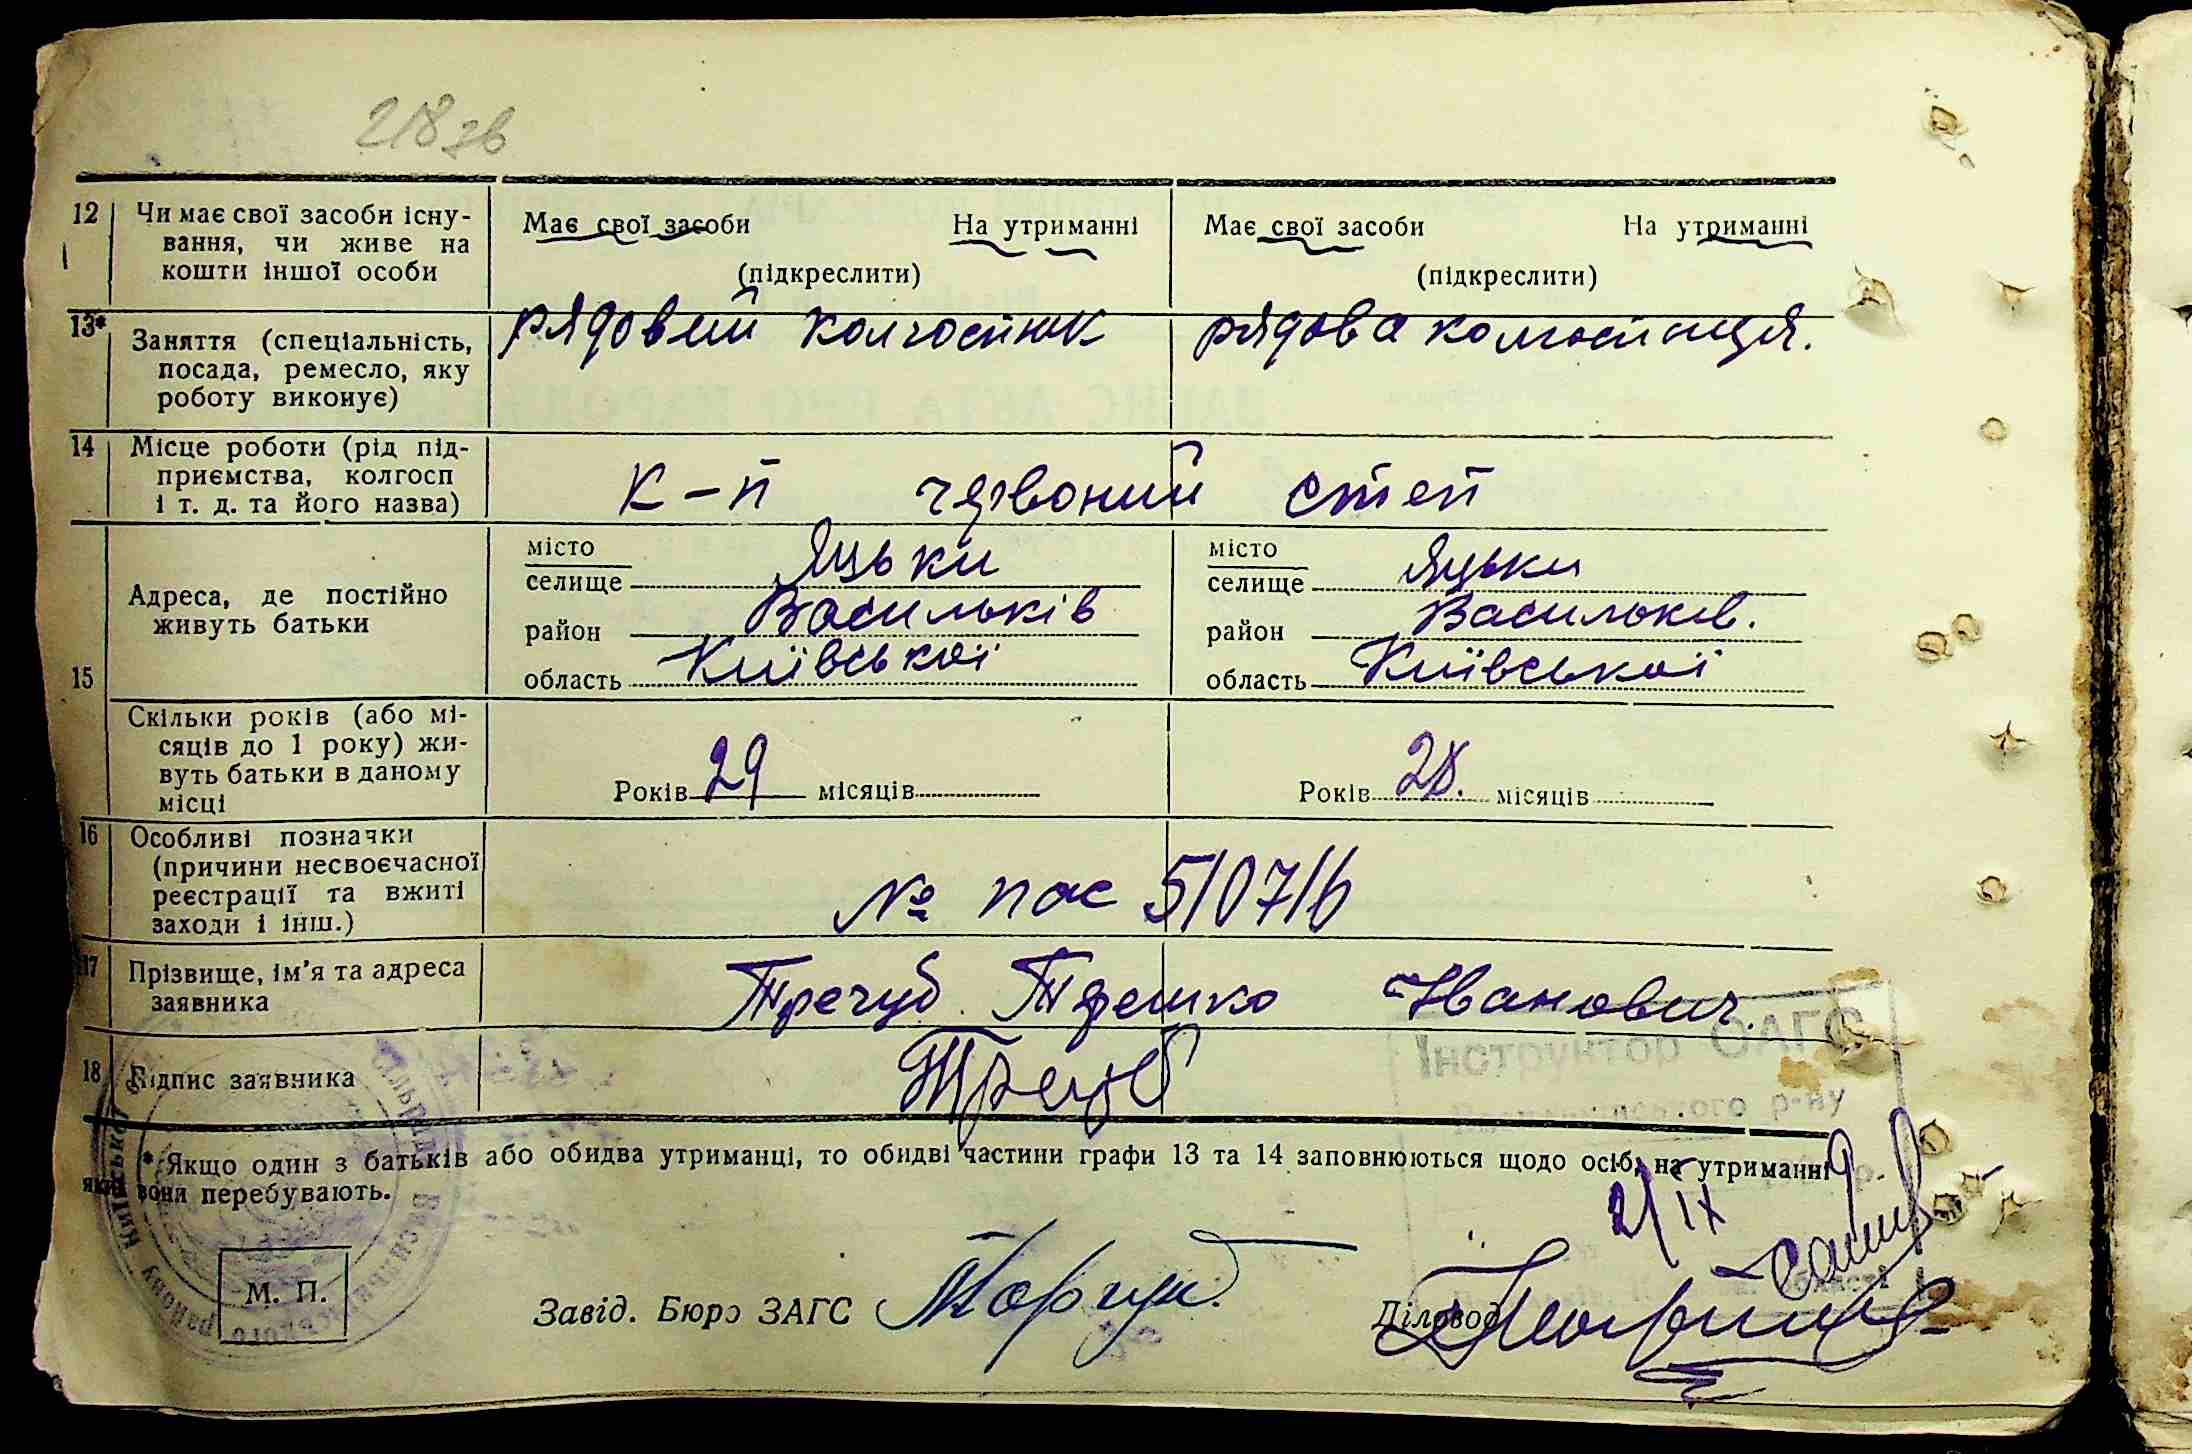 218 зв
12 Чи має свої засоби існу-
вання, чи живе на
кошти іншої особи
Має свої засоби На утриманні
(підкреслити)
Має свої засоби На утриманні
(підкреслити)
13* Заняття (спеціальність,
посада, ремесло, яку
роботу виконує)
рядовий колгоспник
рядова колгоспниця.
14 Місце роботи (рід під-
приємства, колгосп
і т. д. та його назва)
К-п червоний степ
15 Адреса, де постійно
живуть батьки
місто
селище Яцьки
район Васильків
область Київської
місто
селище Яцьки
район Васильків.
область Київської
Скільки років (або мі-
сяців до 1 року) жи-
вуть батьки в даному
місці
Років 29 місяців
Років 28. місяців
16 Особливі позначки
(причини несвоєчасної
реєстрації та вжиті
заходи і інш.)
№ пас 510716
17 Прізвище, ім'я та адреса
заявника
Тречуб Терешко Іванович.
Інструктор ОАГС
р-ну
18 Підпис заявника
Тречуб
* Якщо один з батьків або обидва утриманці, то обидві частини графи 13 та 14 заповнюються щодо осіб, на утриманні
яких вони перебувають.
2/IX
М. П.
Завід. Бюро ЗАГС
Діловод
області
Васильківського району Київської